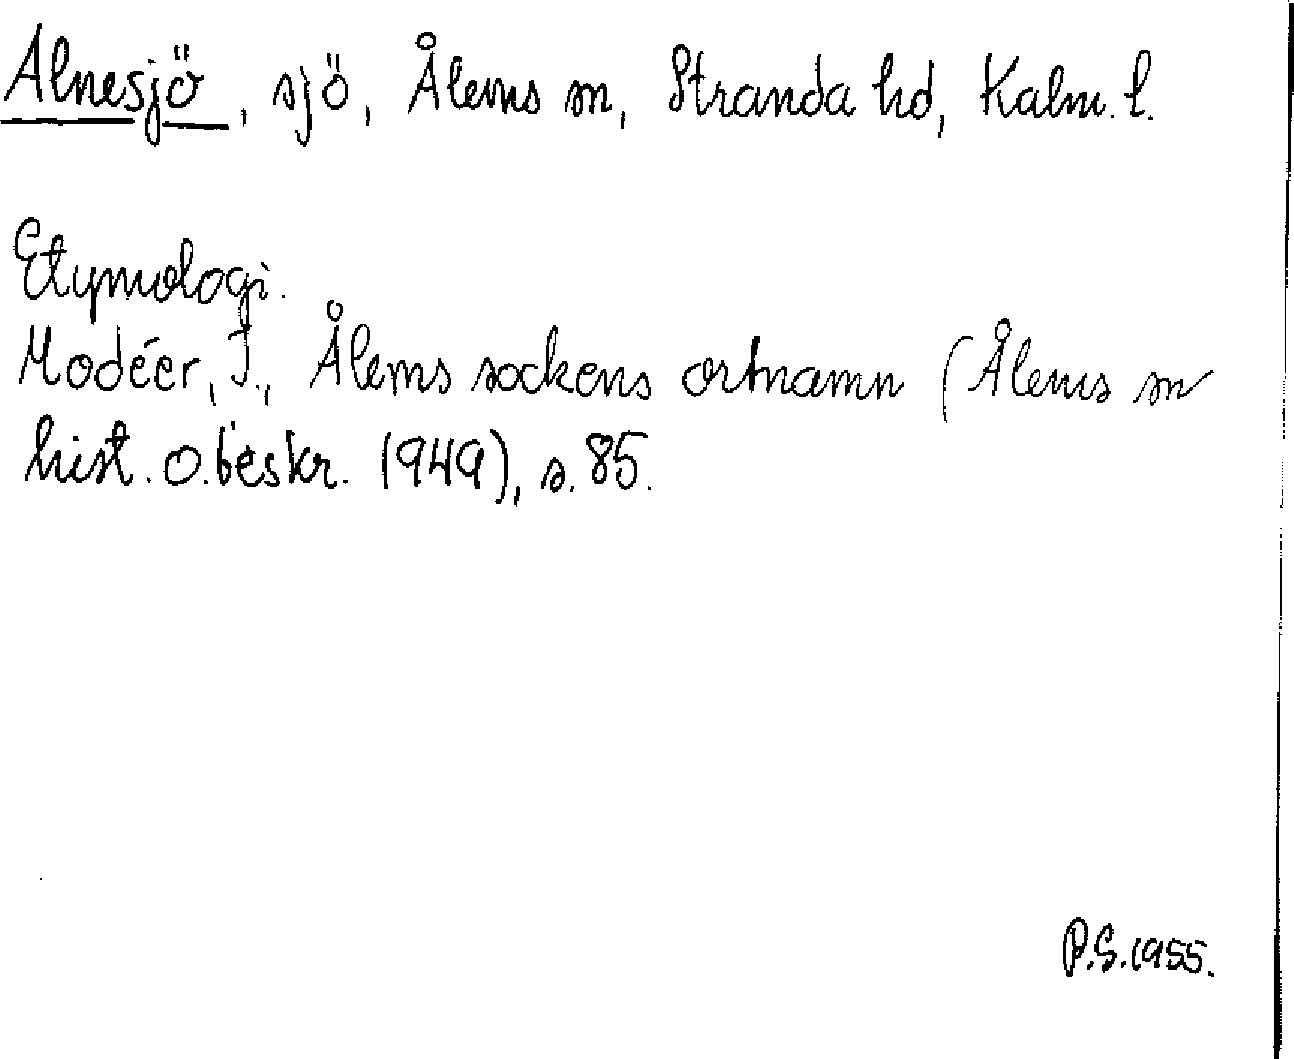 Alnesjö, sjö, Ålems sn, Stranda hd, Kalm. l.
Etymologi.
Modéer, I., Ålems sockens ortnamn (Ålems sn
hist. o. beskr. 1949), s. 85.
P.S. 1955.